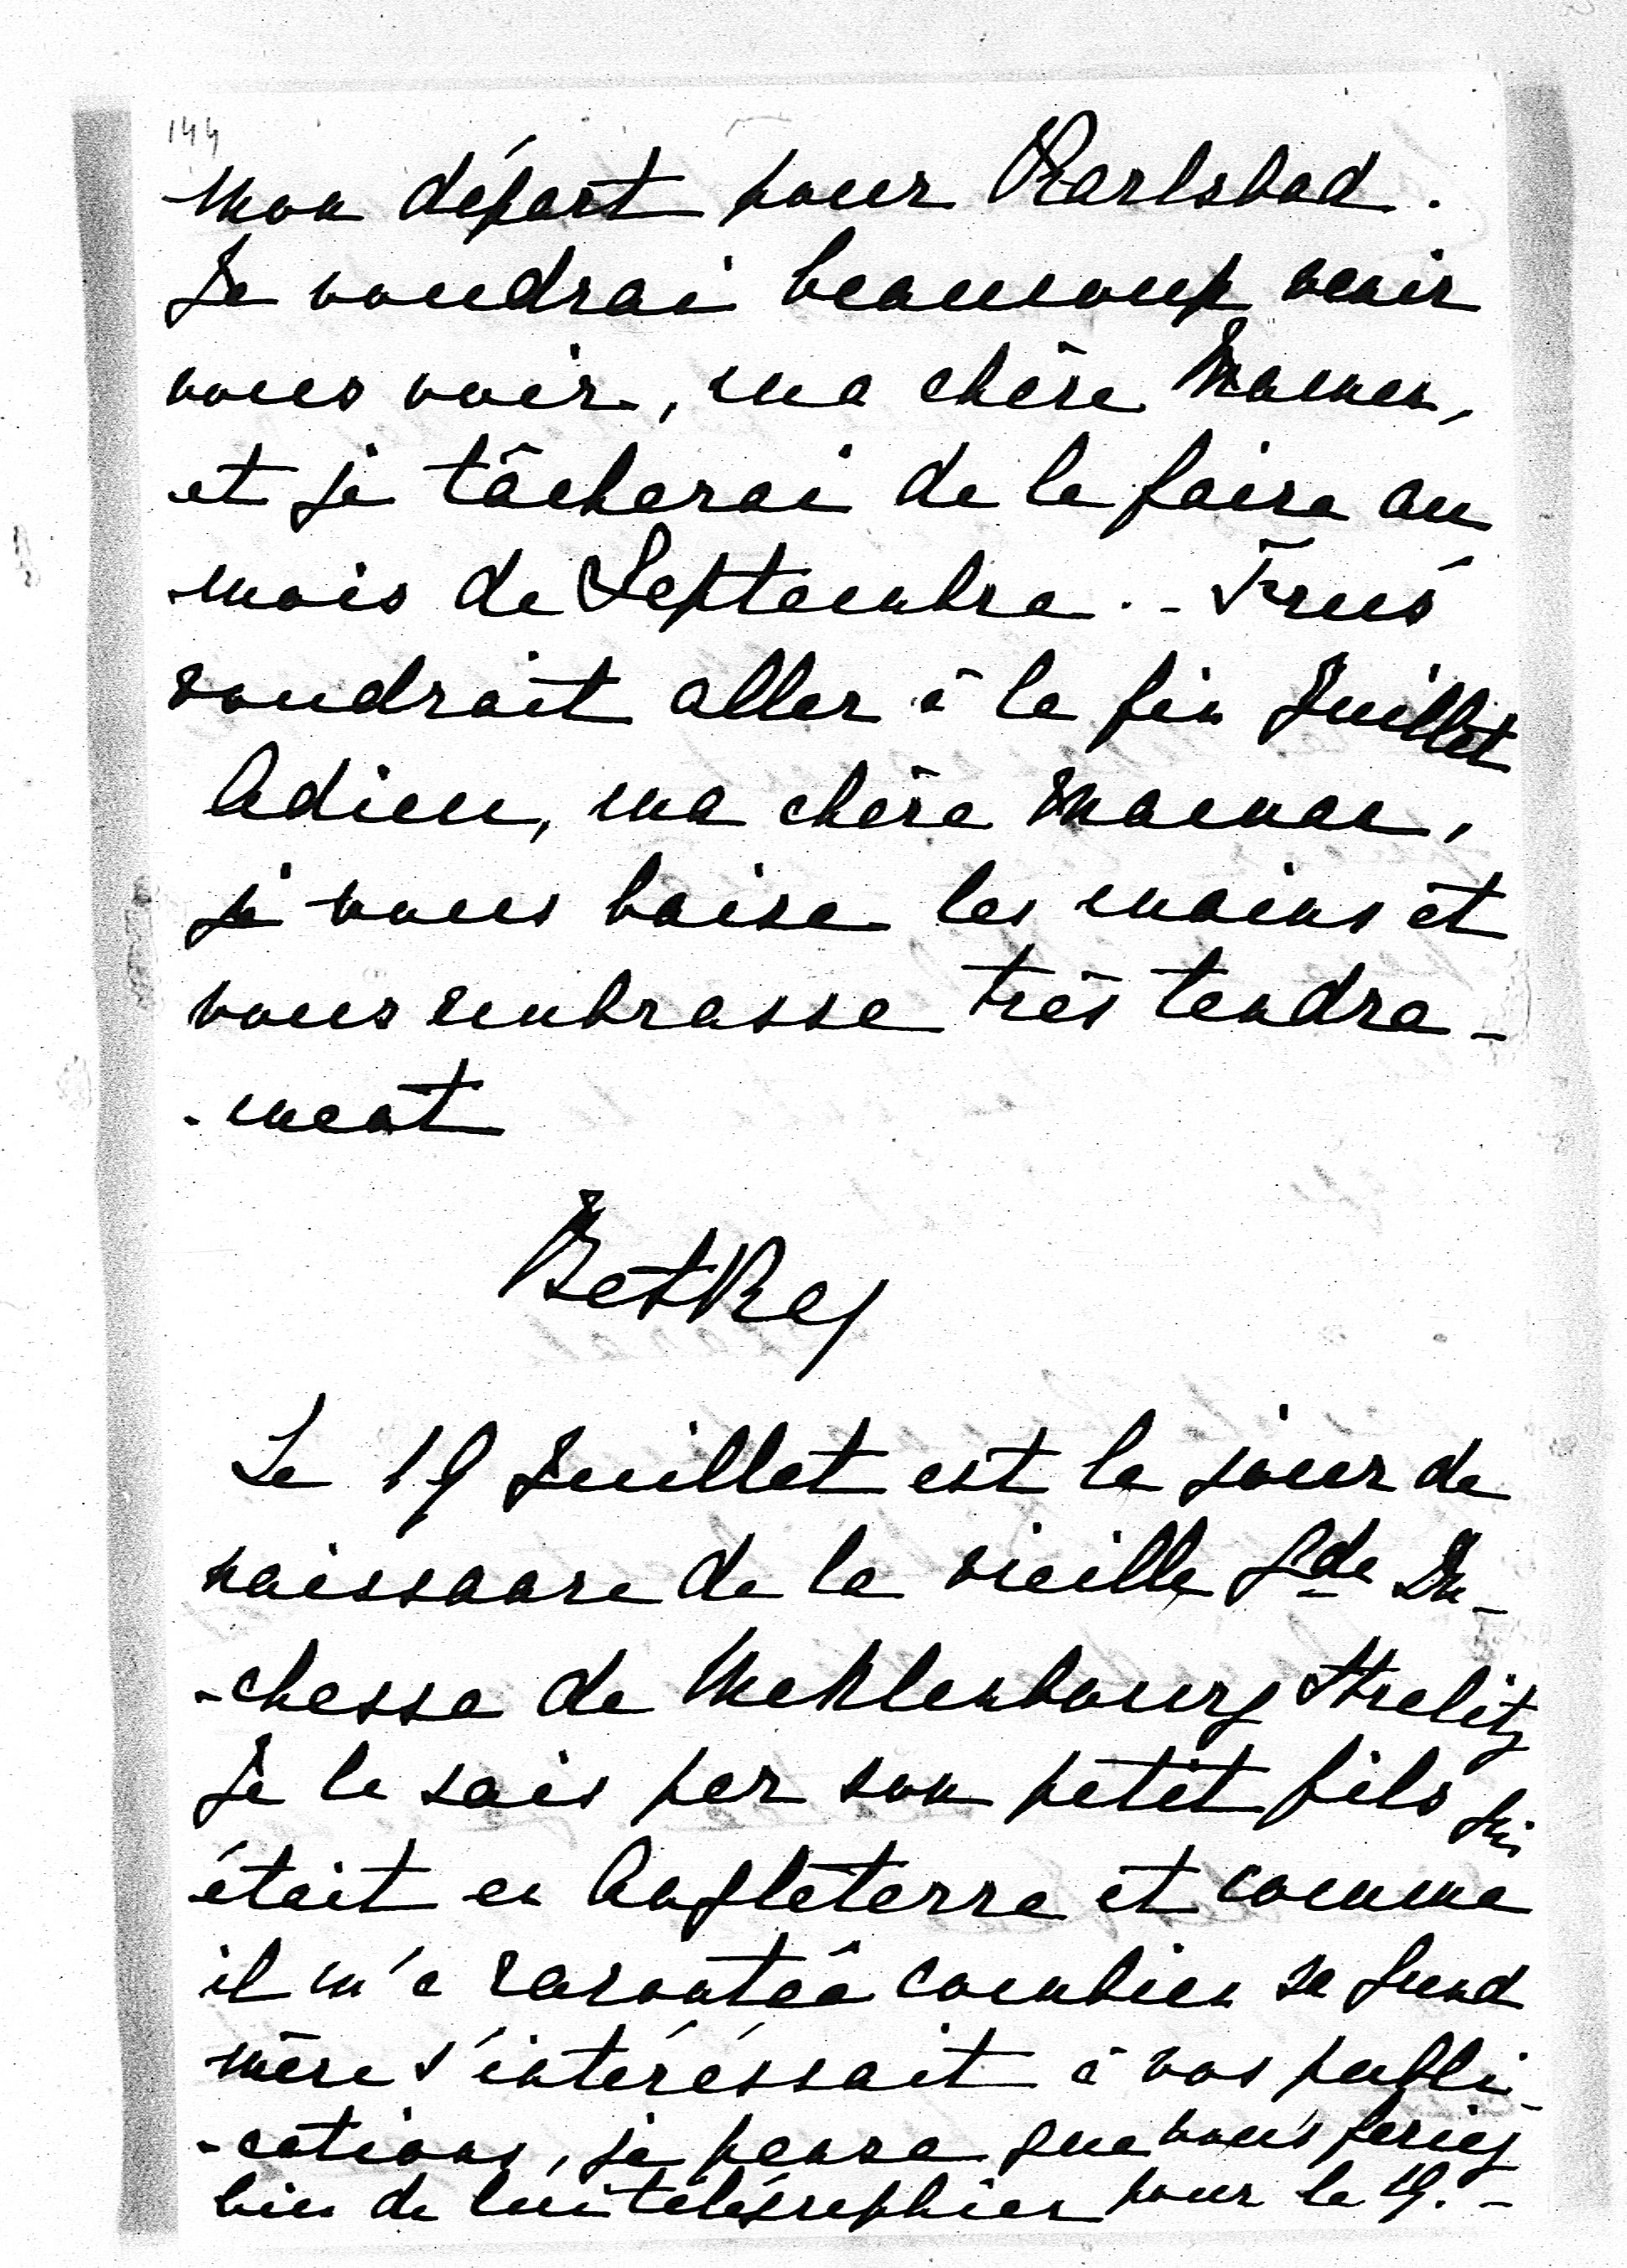 144
mon départ pour Karlsbad.
Je voudrai beaucoup venir
vous voir, ma chère Maman,
et je tâcherai de le faire au
mois de Septembre. -
voudrait aller à la fin Juillet
Adieu, ma chère Maman,
je vous baise les mains et
vous embrasse très tendre-
-ment
Le 19 Juillet est le jour de
naissance de la vieille Gde Du-
-chesse de Meklenbourg Strelitz
Je le sais par son petit fils qui
était en Angleterre et comme
il m'a racontée combien sa grand
mère s'intéréssait à vos publi-
-cations, je pense que vous feriez
bien de lui télégraphier pour le 19. -